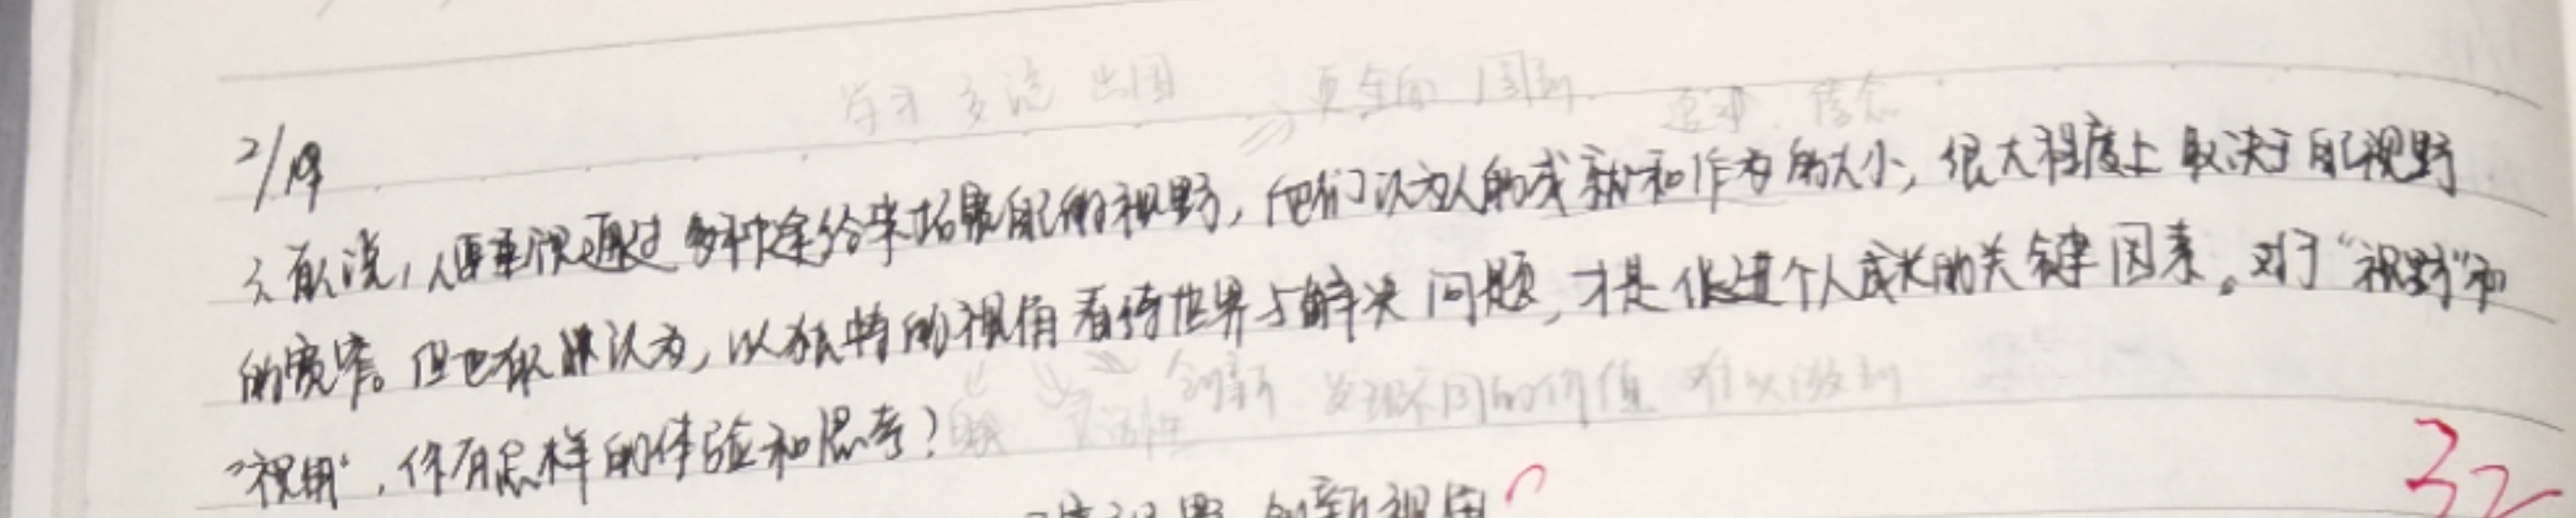 学习 交流 出国 更全面 周到 信念
2/
3. 有人说,人要重视通过多种途径来拓展自己的视野,他们认为人的成就和作为的大小,很大程度上取决于自己视野
的宽窄。但也有人认为,以独特的视角看待世界与解决问题,才是促进个人成长的关键因素。对于“视野”和
创新 发现不同的价值 难以做到
灵活性
“视角”,你有怎样的体验和思考?
视野 创新视角
32